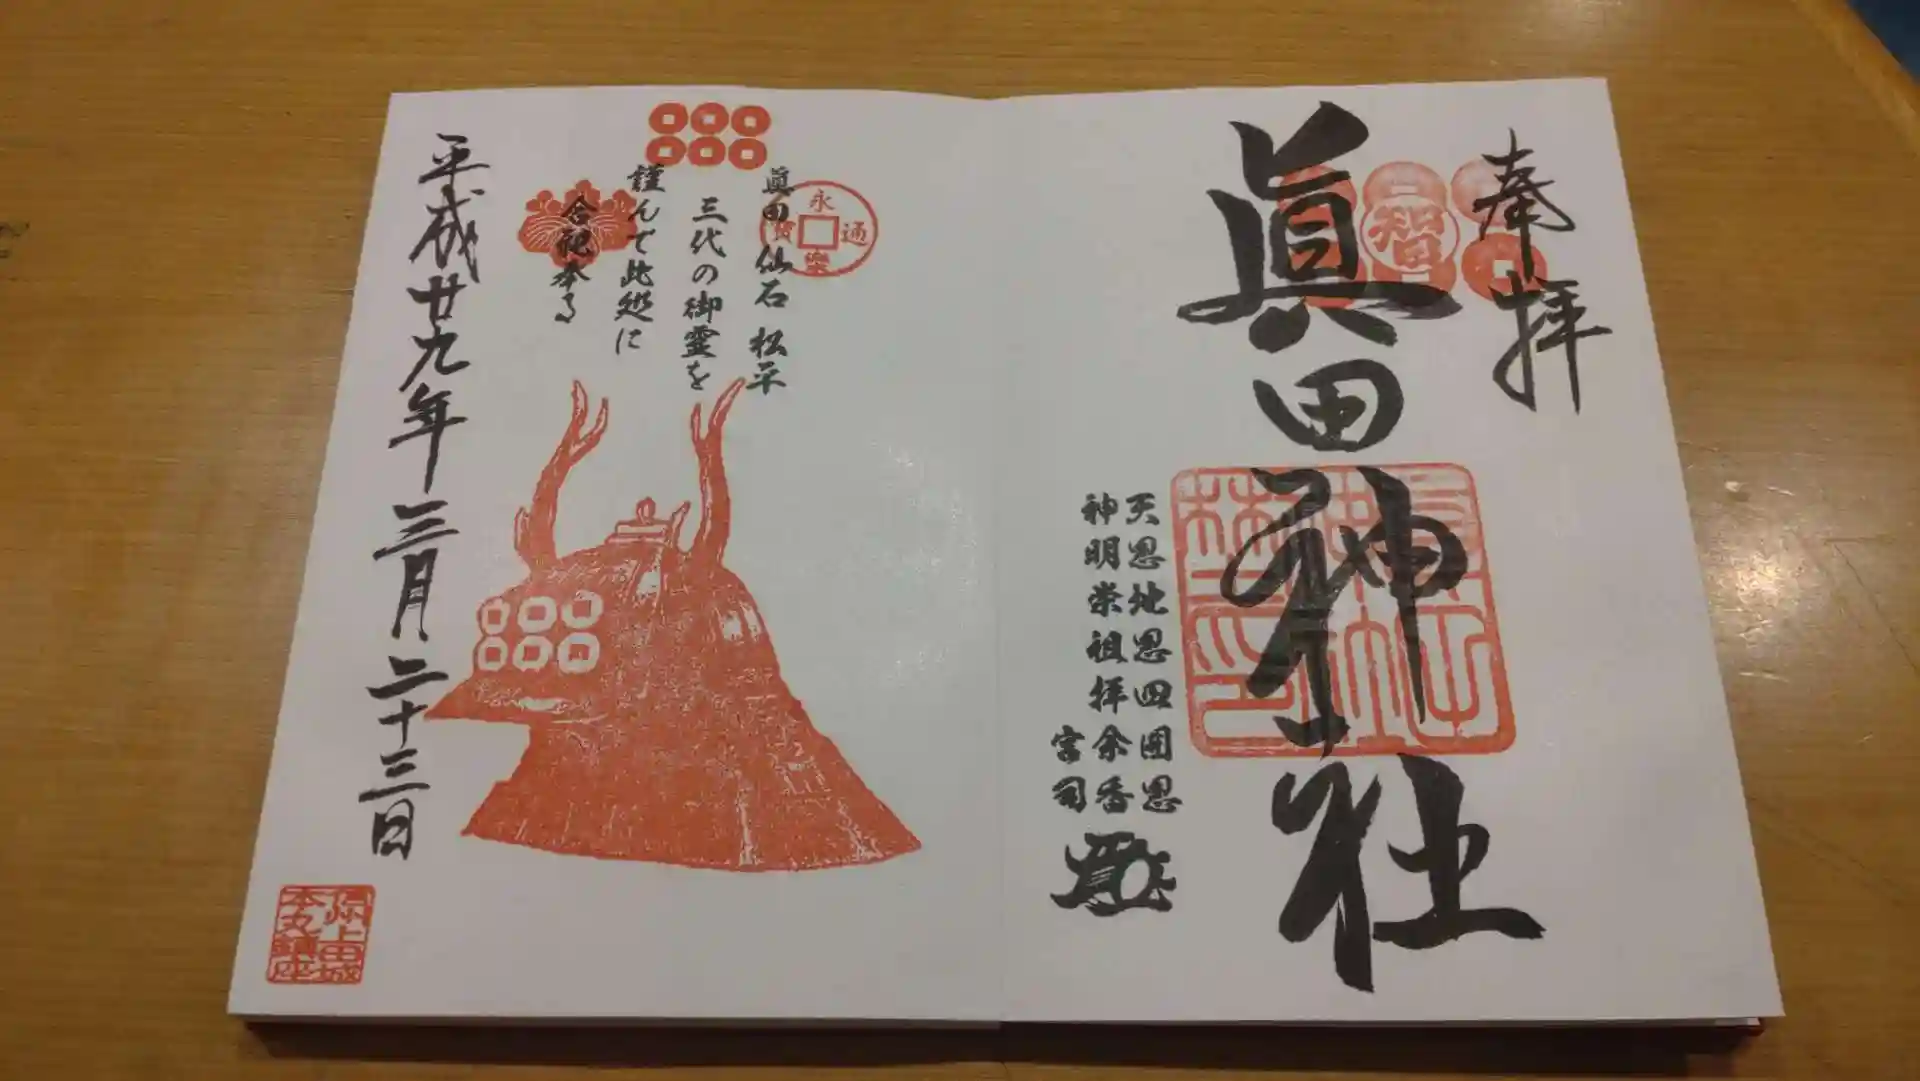 奉拝
智
眞田神社
眞田神社之印
天恩地恩四囲恩
神明崇祖拝余香
宮司
永楽通宝
眞田 仙石 松平
三代の御霊を
謹んで此処に
合祀奉る
平成廿九年三月二十三日
信州上田城
本丸鎮座